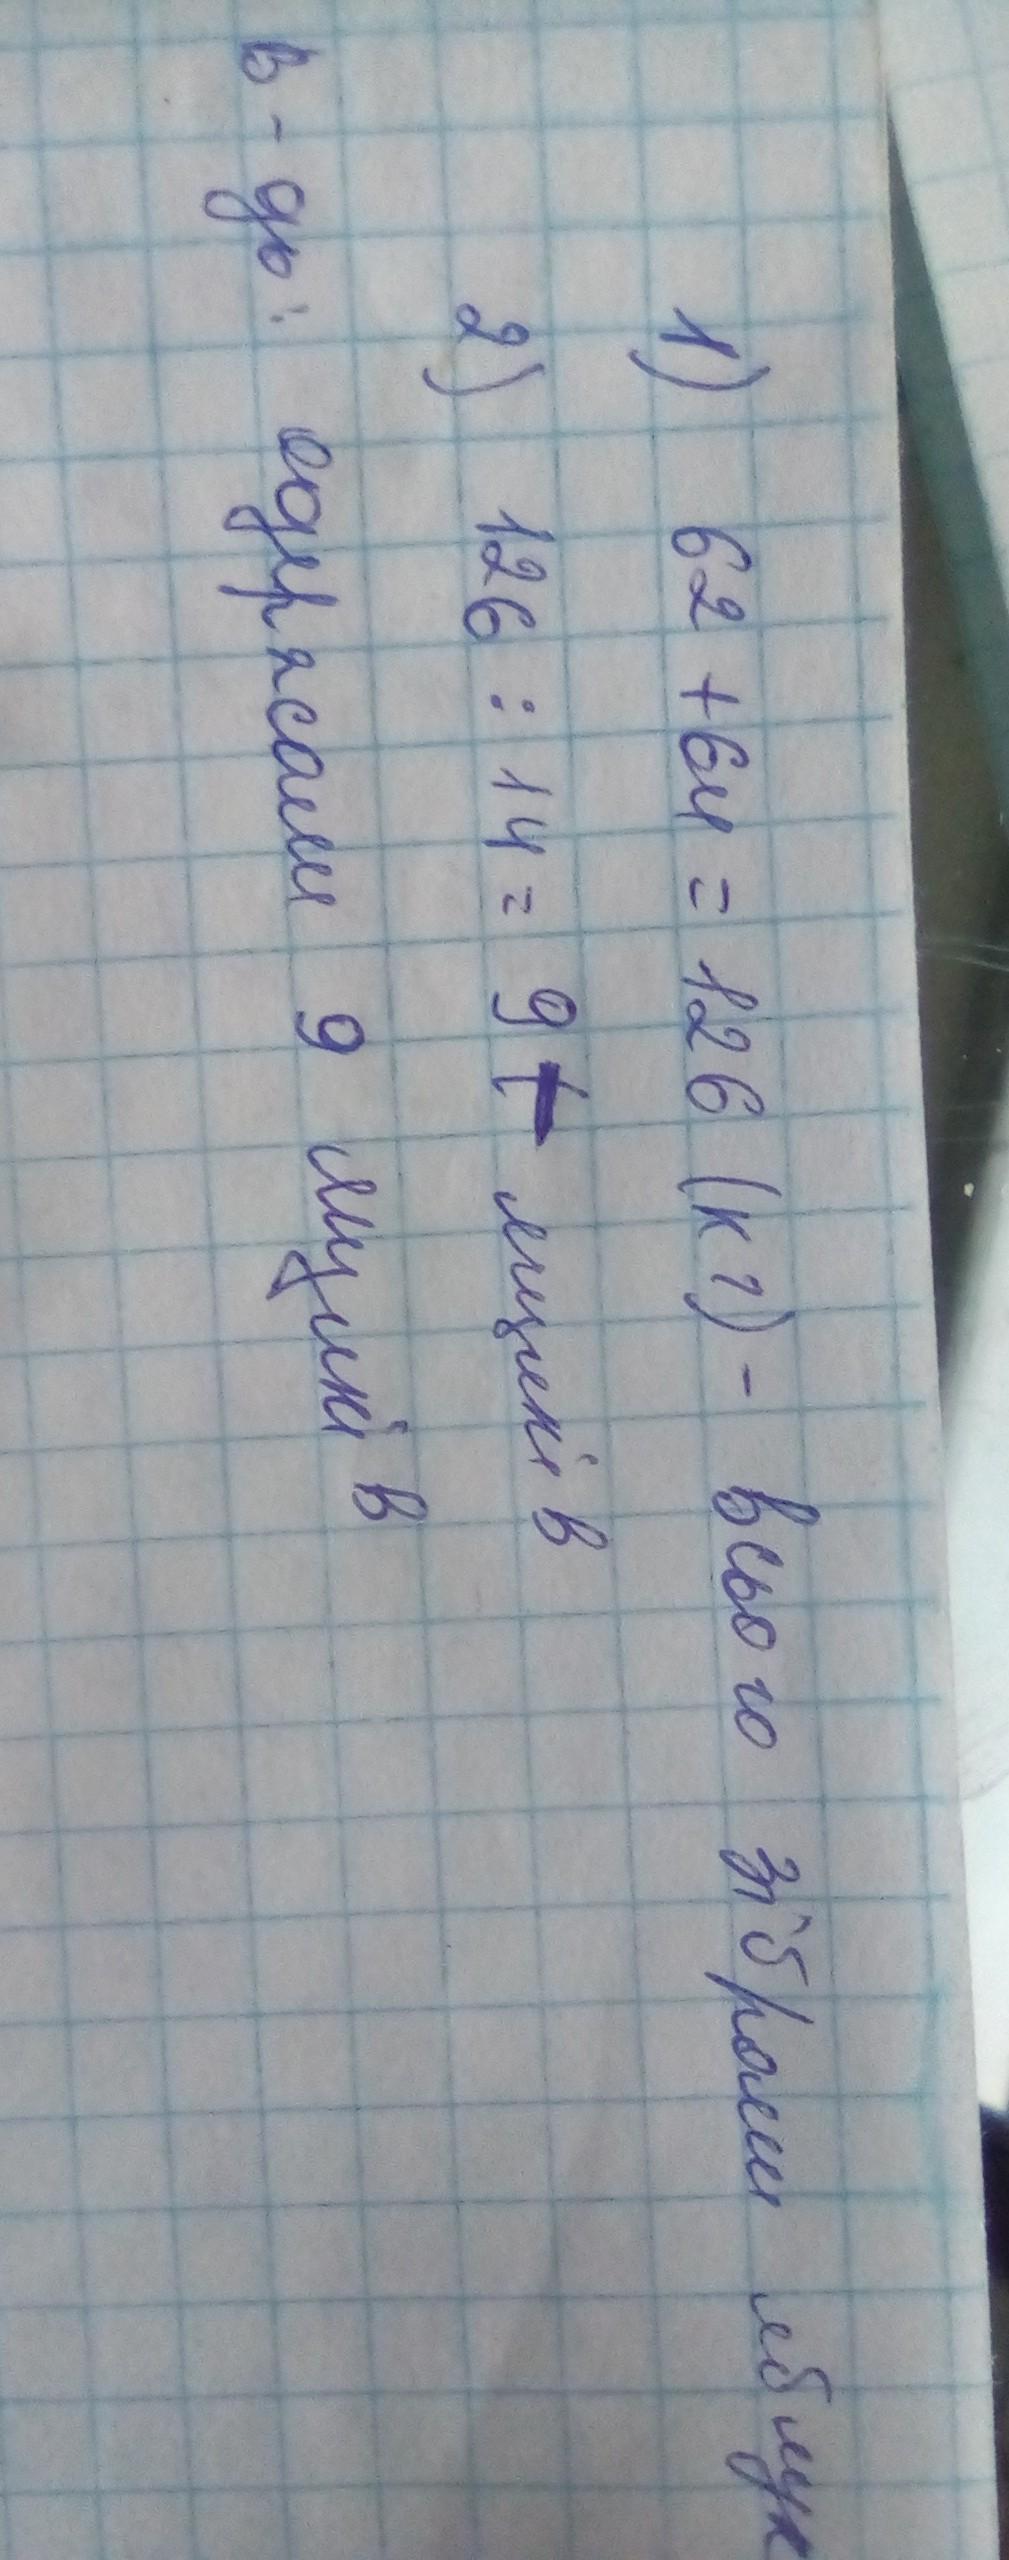 1) 62 + 64 = 126 (кг) - всього зібрали яблук
2) 126 : 14 = 9 ящиків
в-дь: одержали 9 ящиків